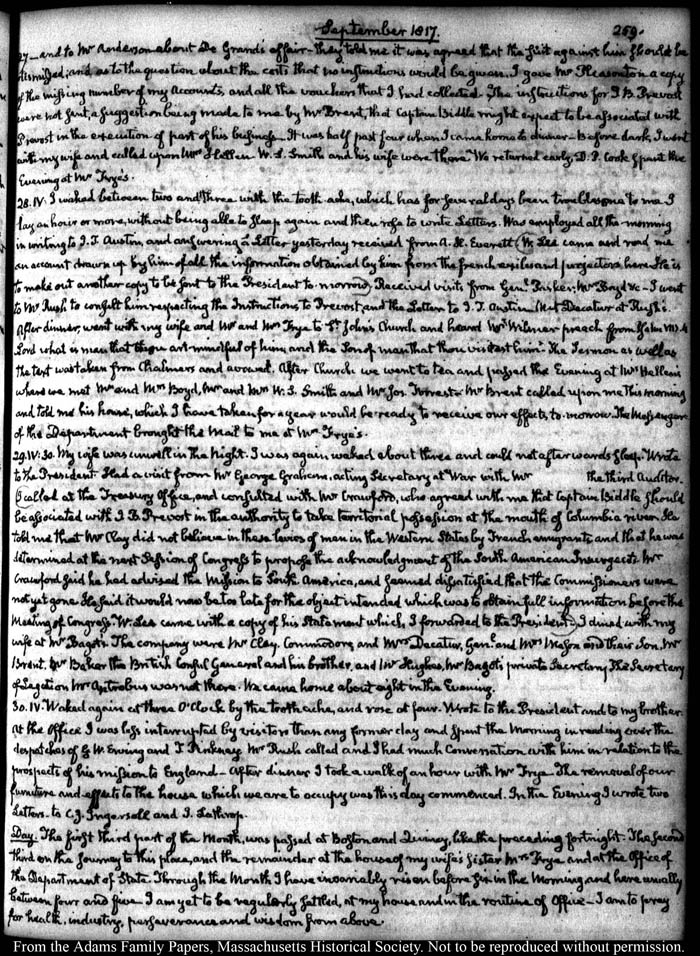 September 1817. 259.
27— and to Mr Anderson about De Grand's affair— they told me it was agreed that the suit against him should be
dismissed; and as to the question about the costs that no instructions would be given. I gave Mr Pleasonton a copy
of the missing number of my Accounts, and all the vouchers that I had collected. The instructions for J. B. Prevost
were not sent, a suggestion being made to me by Mr Brent, that Captain Biddle might expect to be associated with
Prevost in the execution of part of his business. It was half past four when I came home to dinner— Before dark, I went
with my wife and called upon Mrs Hellen. W. S. Smith and his wife were there. We returned early. D. P. Cook spent the
Evening at Mr Frye's.
28. IV. I waked between two and three with the tooth-ache, which has for several days been troublesome to me. I
lay an hour or more, without being able to sleep again and then rose to write Letters. Was employed all the morning
in writing to J. T. Austin, and answering a Letter yesterday received from A. H. Everett. (W. Lee came and read me
an account drawn up by him of all the information obtained by him from the french exiles and projectors here. He is
to make out another copy to be sent to the President to-morrow.) Received visits from Genl. Parker, Mr Boyd &c— I went
to Mr Rush to consult him respecting the Instructions to Prevost, and the Letter to J. T. Austin. Met Decatur at Rush's.
After dinner, went with my wife and Mr and Mrs Frye to St John's Church and heard Mr Wilmer preach from Psalm VIII. 4.
Lord what is man that thou art mindful of him, and the Son of man that thou visitest him. The Sermon as well as
the text was taken from Chalmers and avowed. After Church we went to tea and passed the Evening at Mrs Hellen's
where we met Mr and Mrs Boyd, Mr and Mrs W. S. Smith and Mr Jos. Forrest— Mr Brent called upon me this morning
and told me his house, which I have taken for a year would be ready to receive our effects to-morrow. The Messenger
of the Department brought the Mail to me at Mr Frye's.
29. IV: 30. My wife was unwell in the Night. I was again waked about three and could not afterwards sleep. Wrote
to the President. Had a visit from Mr George Graham, acting Secretary at War with Mr the third Auditor.
(I called at the Treasury Office, and consulted with Mr Crawford, who agreed with me that Captain Biddle should
be associated with J. B. Prevost in the authority to take territorial possession at the mouth of Columbia river. He
told me that Mr Clay did not believe in these levies of men in the Western States by French emigrants and that he was
determined at the next Session of Congress to propose the acknowledgment of the South American Insurgents. Mr
Crawford said he had advised the Mission to South America, and seemed dissatisfied that the Commissioners were
not yet gone. He said it would now be too late for the object intended which was to obtain full information before the
Meeting of Congress. W. Lee came with a copy of his Statement which, I forwarded to the President.) I dined with my
wife at Mr Bagot's. The company were Mr Clay, Commodore and Mrs Decatur, Genl. and Mrs Mason and their Son, Mr
Brent, Mr Baker the British Consul General and his brother, and Mr Hughes, Mr Bagot's private Secretary. The Secretary
of Legation Mr Antrobus was not there. We came home about eight in the Evening.
30. IV. Waked again at three O'Clock by the tooth ache, and rose at four. Wrote to the President and to my brother.
At the Office I was less interrupted by visitors than any former day and spent the Morning in reading over the
despatches of G. W. Erving and T. Pinkney. Mr Rush called and I had much Conversation with him in relation to the
prospects of his mission to England— After dinner I took a walk of an hour with Mr Frye— The removal of our
furniture and effects to the house which we are to occupy was this day commenced. In the Evening I wrote two
Letters. to C. J. Ingersoll and J. Lathrop.
Day. The first third part of the Month, was passed at Boston and Quincy, like the preceding fortnight. The Second
third on the Journey to this place, and the remainder at the house of my wife's Sister Mrs Frye and at the Office of
the Department of State. Through the Month I have invariably risen before six in the Morning and here usually
between four and five— I am yet to be regularly settled, at my house and in the routine of Office— I am to pray
for health, industry, perseverance and wisdom from above.
From the Adams Family Papers, Massachusetts Historical Society. Not to be reproduced without permission.